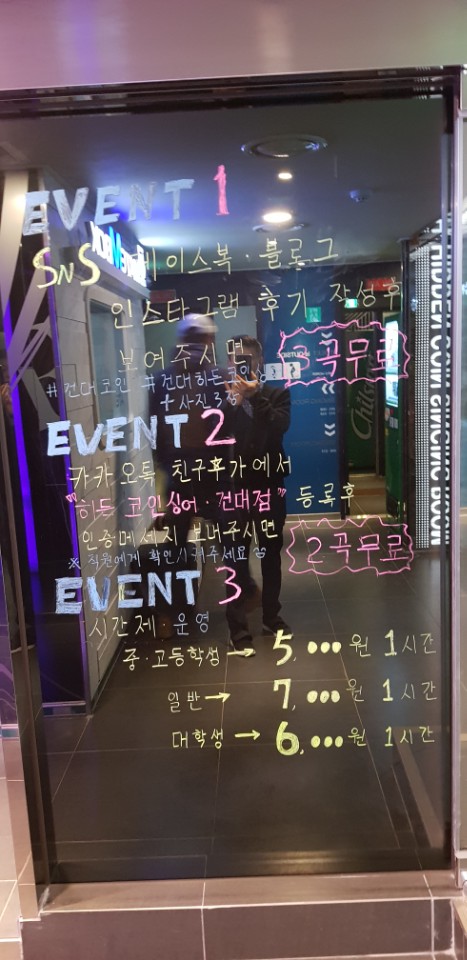 EVENT 1
SNS 페이스북·블로그
인스타그램 후기 작성후
보여주시면 2곡무료
#건대코인 #건대히든코인싱
+사진3장
EVENT 2
카카오톡 친구추가에서
"히든 코인싱어·건대점" 등록후
인증메세지 보내주시면 2곡무료
※직원에게 확인시켜주세요
EVENT 3
시간제·운영
중·고등학생→ 5,●●●원 1시간
일반→ 7,●●●원 1시간
대학생→ 6,●●●원 1시간
HIDDEN COIN SINGING ROOM